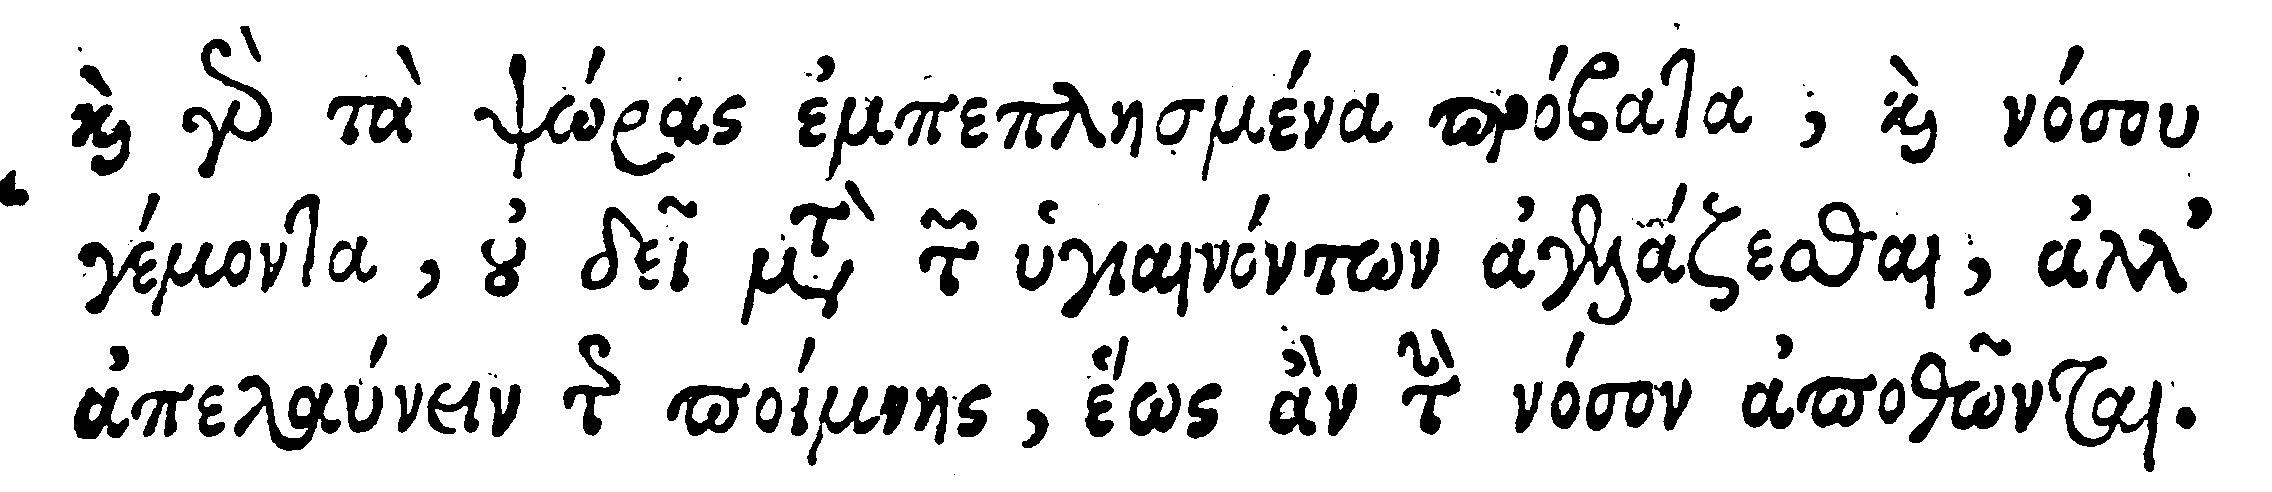 καὶ γὰρ τὰ ψώρας ἐμπεπλησμένα πρόβατα, καὶ νόσου
γέμοντα, οὐ δεῖ μετὰ τῶν ὑγιαινόντων ἀυλίζεσθαι, ἀλλ'
ἀπελαύνειν τῆς ποίμνης, ἕως ἂν τὴν νόσον ἀποθῶνται.